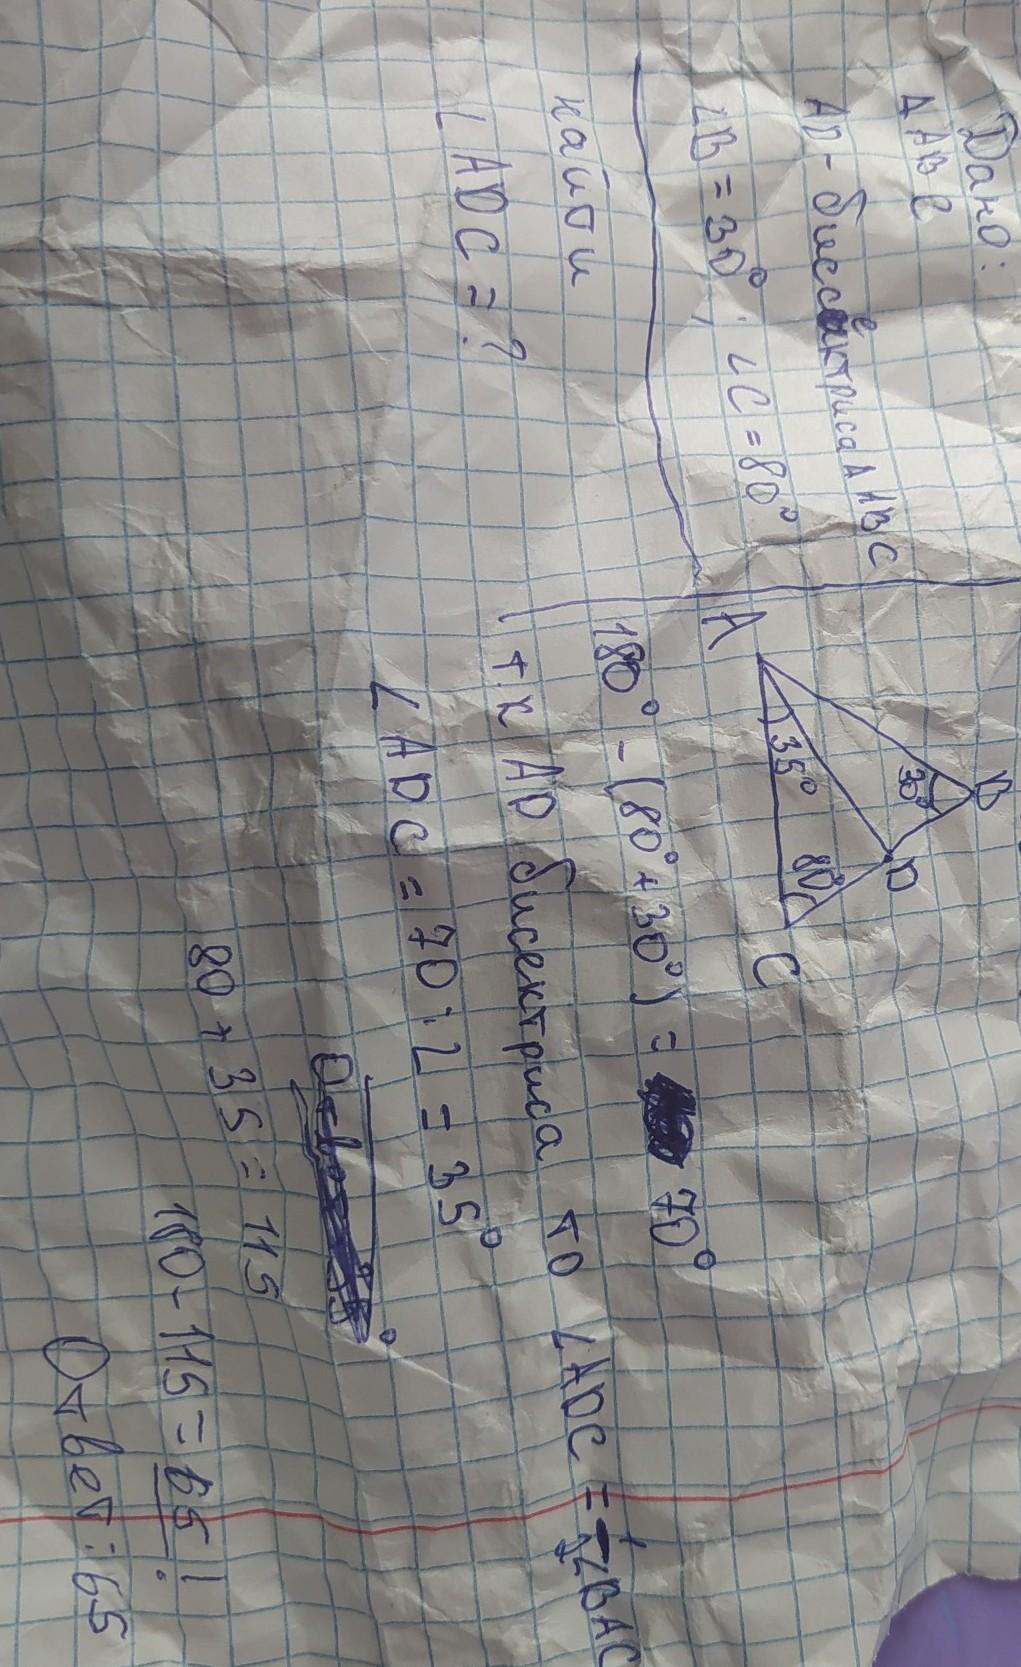 Дано:
Δ ABC
AD - биссектриса Δ ABC
∠B = 30°, ∠C = 80°
найти
∠ADC = ?
B
30°
D
A
35°
80°
C
180° - (80° + 30°) = 70°
т.к AD бисектриса то ∠ADC = ½∠BAC
∠ADC = 70 : 2 = 35°
80 + 35 = 115
180 - 115 = 65!
Ответ: 65